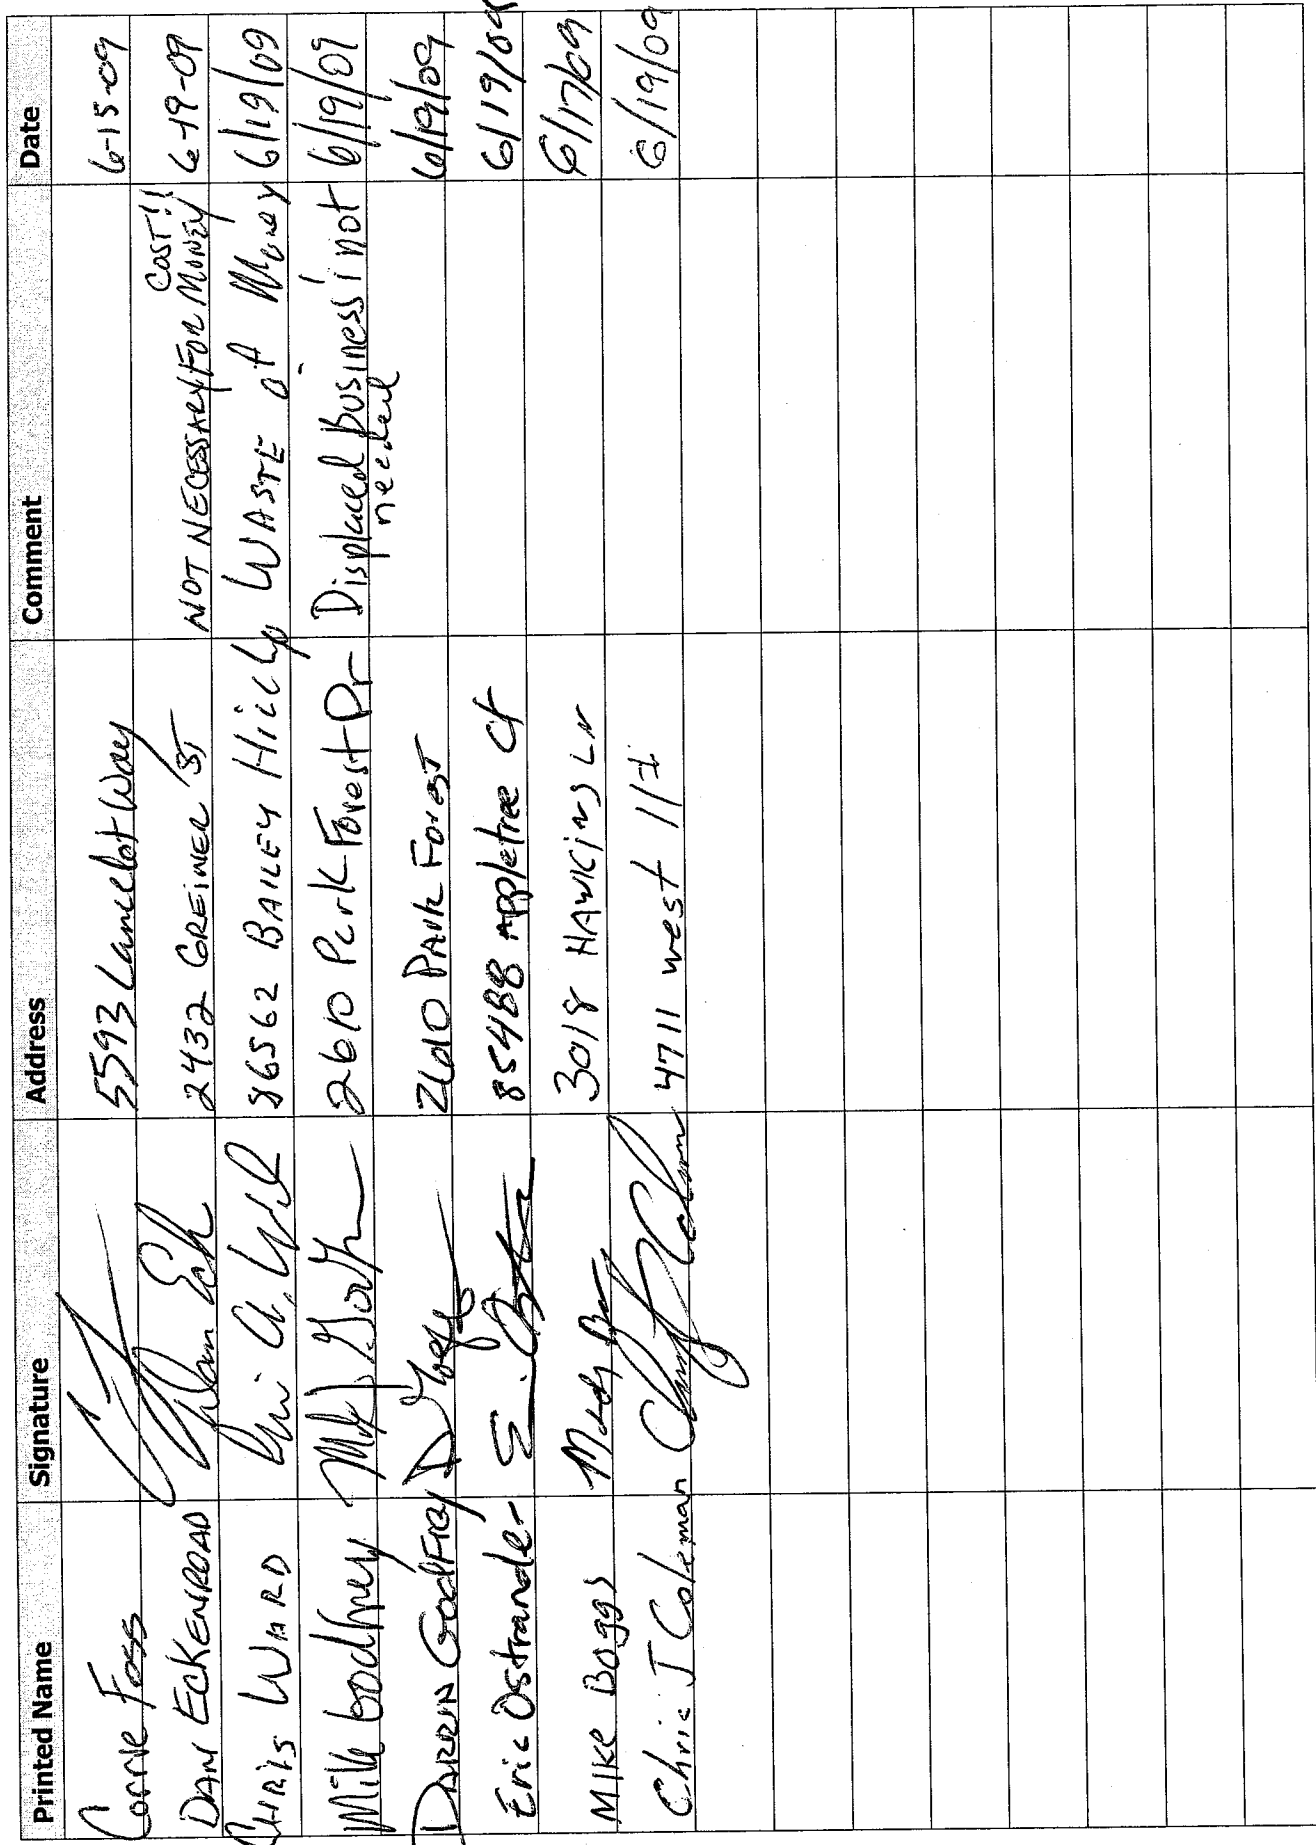 Printed Name Signature Address Comment Date
Corrie Foss 5593 Lancelot Way 6-15-09
DAN ECKENROAD Dan Eck 2432 GREINER ST NOT NECESSARY FOR MONEY COST!! 6-19-09
CHRIS WARD 86562 BAILEY Hill Lp WASTE of Money 6/19/09
Mike Godfrey 2610 Park Forest Dr Displaced business i not needed 6/19/09
DARRIN GodFREy 2610 PArk Forest 6/19/09
Eric Ostrander 85488 Appletree Ct 6/19/09
MIKE Boggs 3018 HAWKiNS LN 6/17/09
Chris J Coleman 4711 west 11th 6/19/09